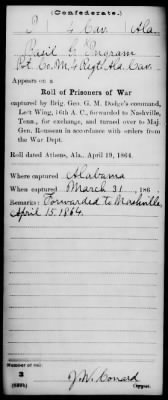 (Confederate.)
4 Cav. Ala.
Basil G. Ingram
Pvt. Co. M, 4 Regt Ala. Cav.
Appears on a
Roll of Prisoners of War
captured by Brig. Gen. G. M. Dodge's command,
Left Wing, 16th A. C., forwarded to Nashville,
Tenn., for exchange, and turned over to Maj.
Gen. Rousseau in accordance with orders from
the War Dept.
Roll dated Athens, Ala., April 19, 1864.
Where captured Alabama
When captured March 31, 186
Remarks: Forwarded to Nashville,
April 15, 1864.
Number of roll:
3
J. W. Conard
Copyist.